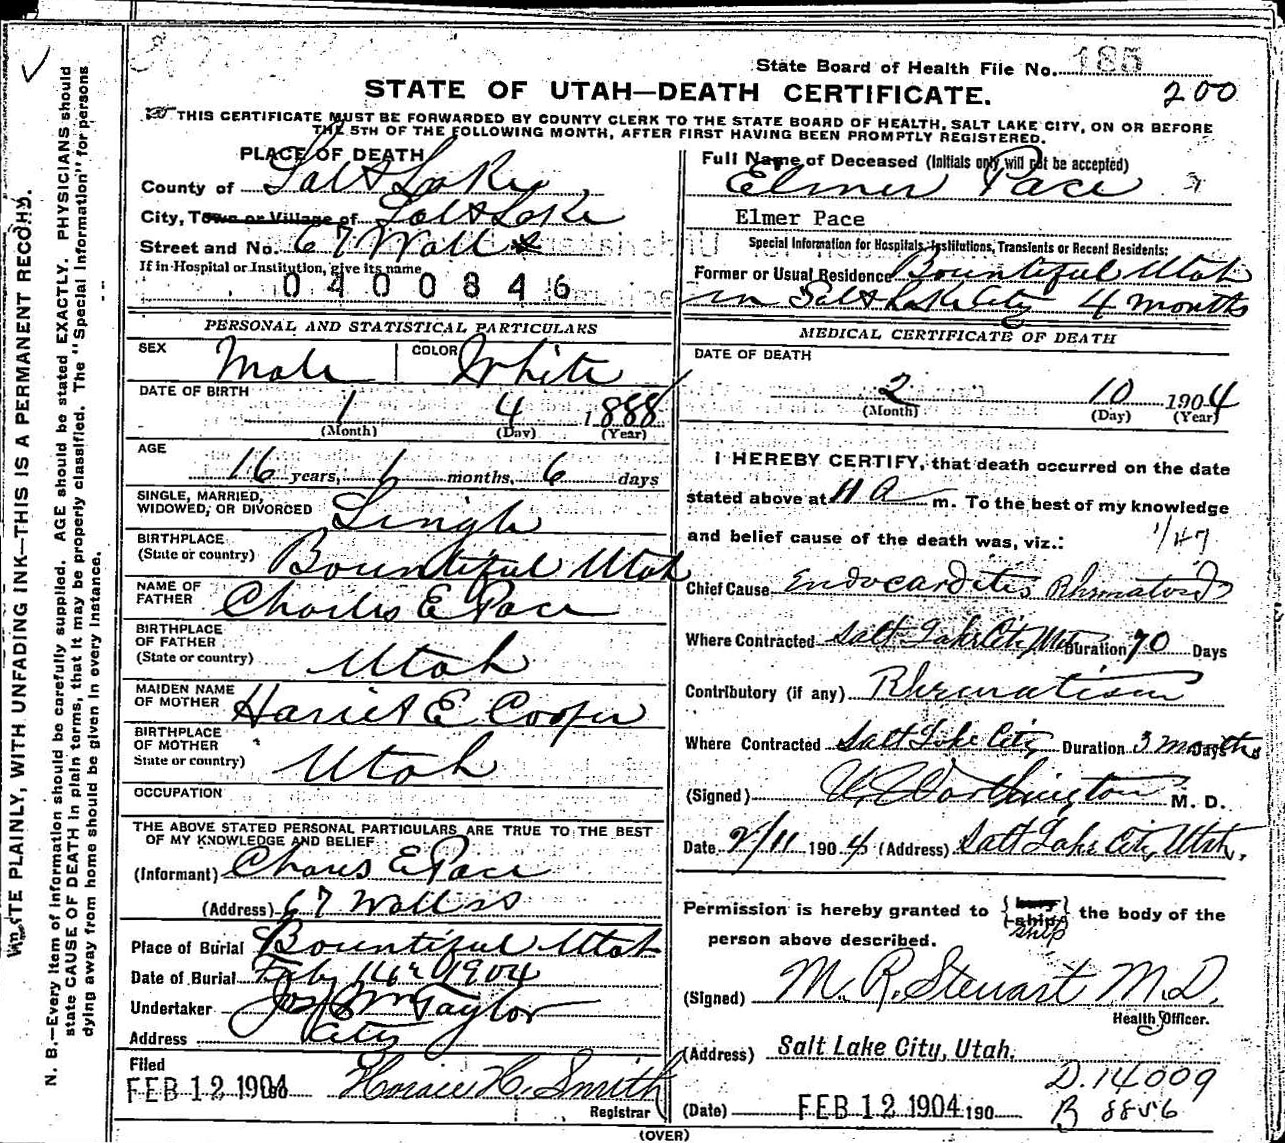 State Board of Health File No. 185
STATE OF UTAH—DEATH CERTIFICATE.
200
THIS CERTIFICATE MUST BE FORWARDED BY COUNTY CLERK TO THE STATE BOARD OF HEALTH, SALT LAKE CITY, ON OR BEFORE
THE 5TH OF THE FOLLOWING MONTH, AFTER FIRST HAVING BEEN PROMPTLY REGISTERED.
PLACE OF DEATH
County of Salt Lake
City, Town or Village of Salt Lake
Street and No. 67 Wall
If in Hospital or Institution, give its name
0400846
PERSONAL AND STATISTICAL PARTICULARS
SEX Male COLOR White
DATE OF BIRTH
1 4 1888
(Month) (Day) (Year)
AGE
16 years, 1 months, 6 days
SINGLE, MARRIED,
WIDOWED, OR DIVORCED Single
BIRTHPLACE
(State or country) Bountiful Utah
NAME OF
FATHER Charles E Pace
BIRTHPLACE
OF FATHER
(State or country) Utah
MAIDEN NAME
OF MOTHER Harriet E Cooper
BIRTHPLACE
OF MOTHER
State or country) Utah
OCCUPATION
THE ABOVE STATED PERSONAL PARTICULARS ARE TRUE TO THE BEST
OF MY KNOWLEDGE AND BELIEF
(Informant) Charles E Pace
(Address) 67 Wall
Place of Burial Bountiful Utah
Date of Burial Feb 1904
Undertaker Jos Wm Taylor
Address City
Filed
FEB 12 1904 Horace H. Smith
Registrar
Full Name of Deceased (Initials only will not be accepted)
Elmer Pace
Elmer Pace
Special Information for Hospitals, Institutions, Transients or Recent Residents:
Former or Usual Residence Bountiful Utah
in Salt Lake City 4 months
MEDICAL CERTIFICATE OF DEATH
DATE OF DEATH
2 10 1904
(Month) (Day) (Year)
I HEREBY CERTIFY, that death occurred on the date
stated above at 11 a m. To the best of my knowledge
and belief cause of the death was, viz.:
1/47
Chief Cause Endocarditis Rhematoid
Where Contracted Salt Lake City Duration 70 Days
Contributory (if any) Rhematism
Where Contracted Salt Lake City Duration 3 months Days
(Signed) Worthington M. D.
Date 2/11 1904 (Address) Salt Lake City, Utah.
Permission is hereby granted to {bury ship} ship the body of the
person above described.
(Signed) M. R. Stewart M.D.
Health Officer.
(Address) Salt Lake City, Utah.
D. 14009
(Date) FEB 12 1904 190
B 8856
(OVER)
WRITE PLAINLY, WITH UNFADING INK—THIS IS A PERMANENT RECORD.
N. B.—Every item of information should be carefully supplied. AGE should be stated EXACTLY. PHYSICIANS should
state CAUSE OF DEATH in plain terms, that it may be properly classified. The "Special Information" for persons
dying away from home should be given in every instance.